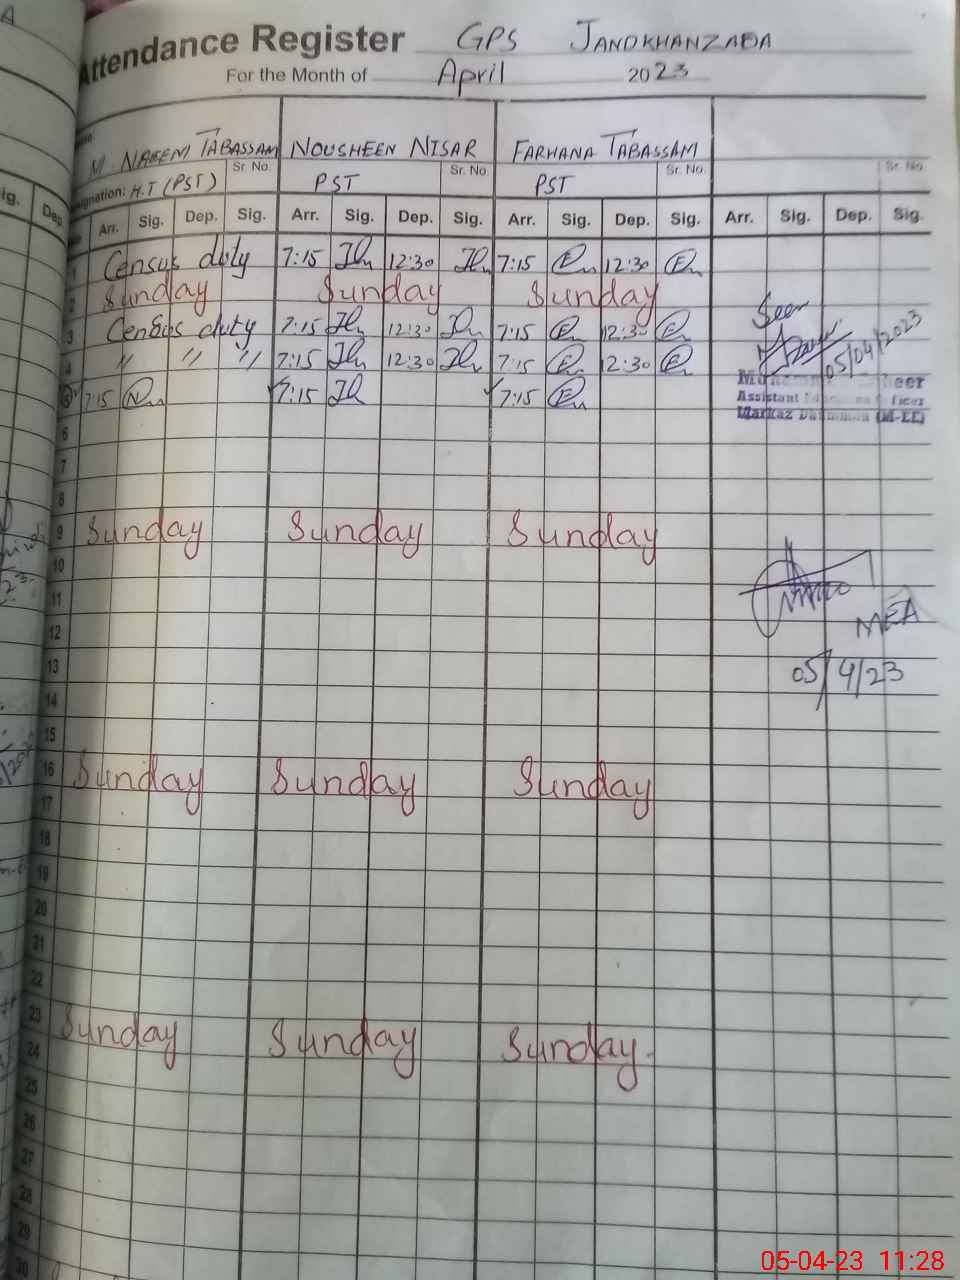 Attendance Register GPS JANDKHANZADA
For the Month of April 2023
M. NAEEM TABASSAM NOUSHEEN NISAR FARHANA TABASSAM
Sr. No. Sr. No. Sr. No. Sr. No.
Designation: H.T (PST) PST PST
Arr. Sig. Dep. Sig. Arr. Sig. Dep. Sig. Arr. Sig. Dep. Sig. Arr. Sig. Dep. Sig.
1 Census duty 7:15 12:30 7:15 12:30
2 Sunday Sunday Sunday
Seen
3 Census duty 7:15 12:30 7:15 12:30
05/04/2023
4 " " " 7:15 12:30 7:15 12:30
5 7:15 7:15 7:15
Assistant
Markaz (M-EE)
6
7
8
9 Sunday Sunday Sunday
10
11
12 MEA
13 05/4/23
14
15
16 Sunday Sunday Sunday
17
18
19
20
21
22
23 Sunday Sunday Sunday
24
25
26
27
28
29
30
05-04-23 11:28